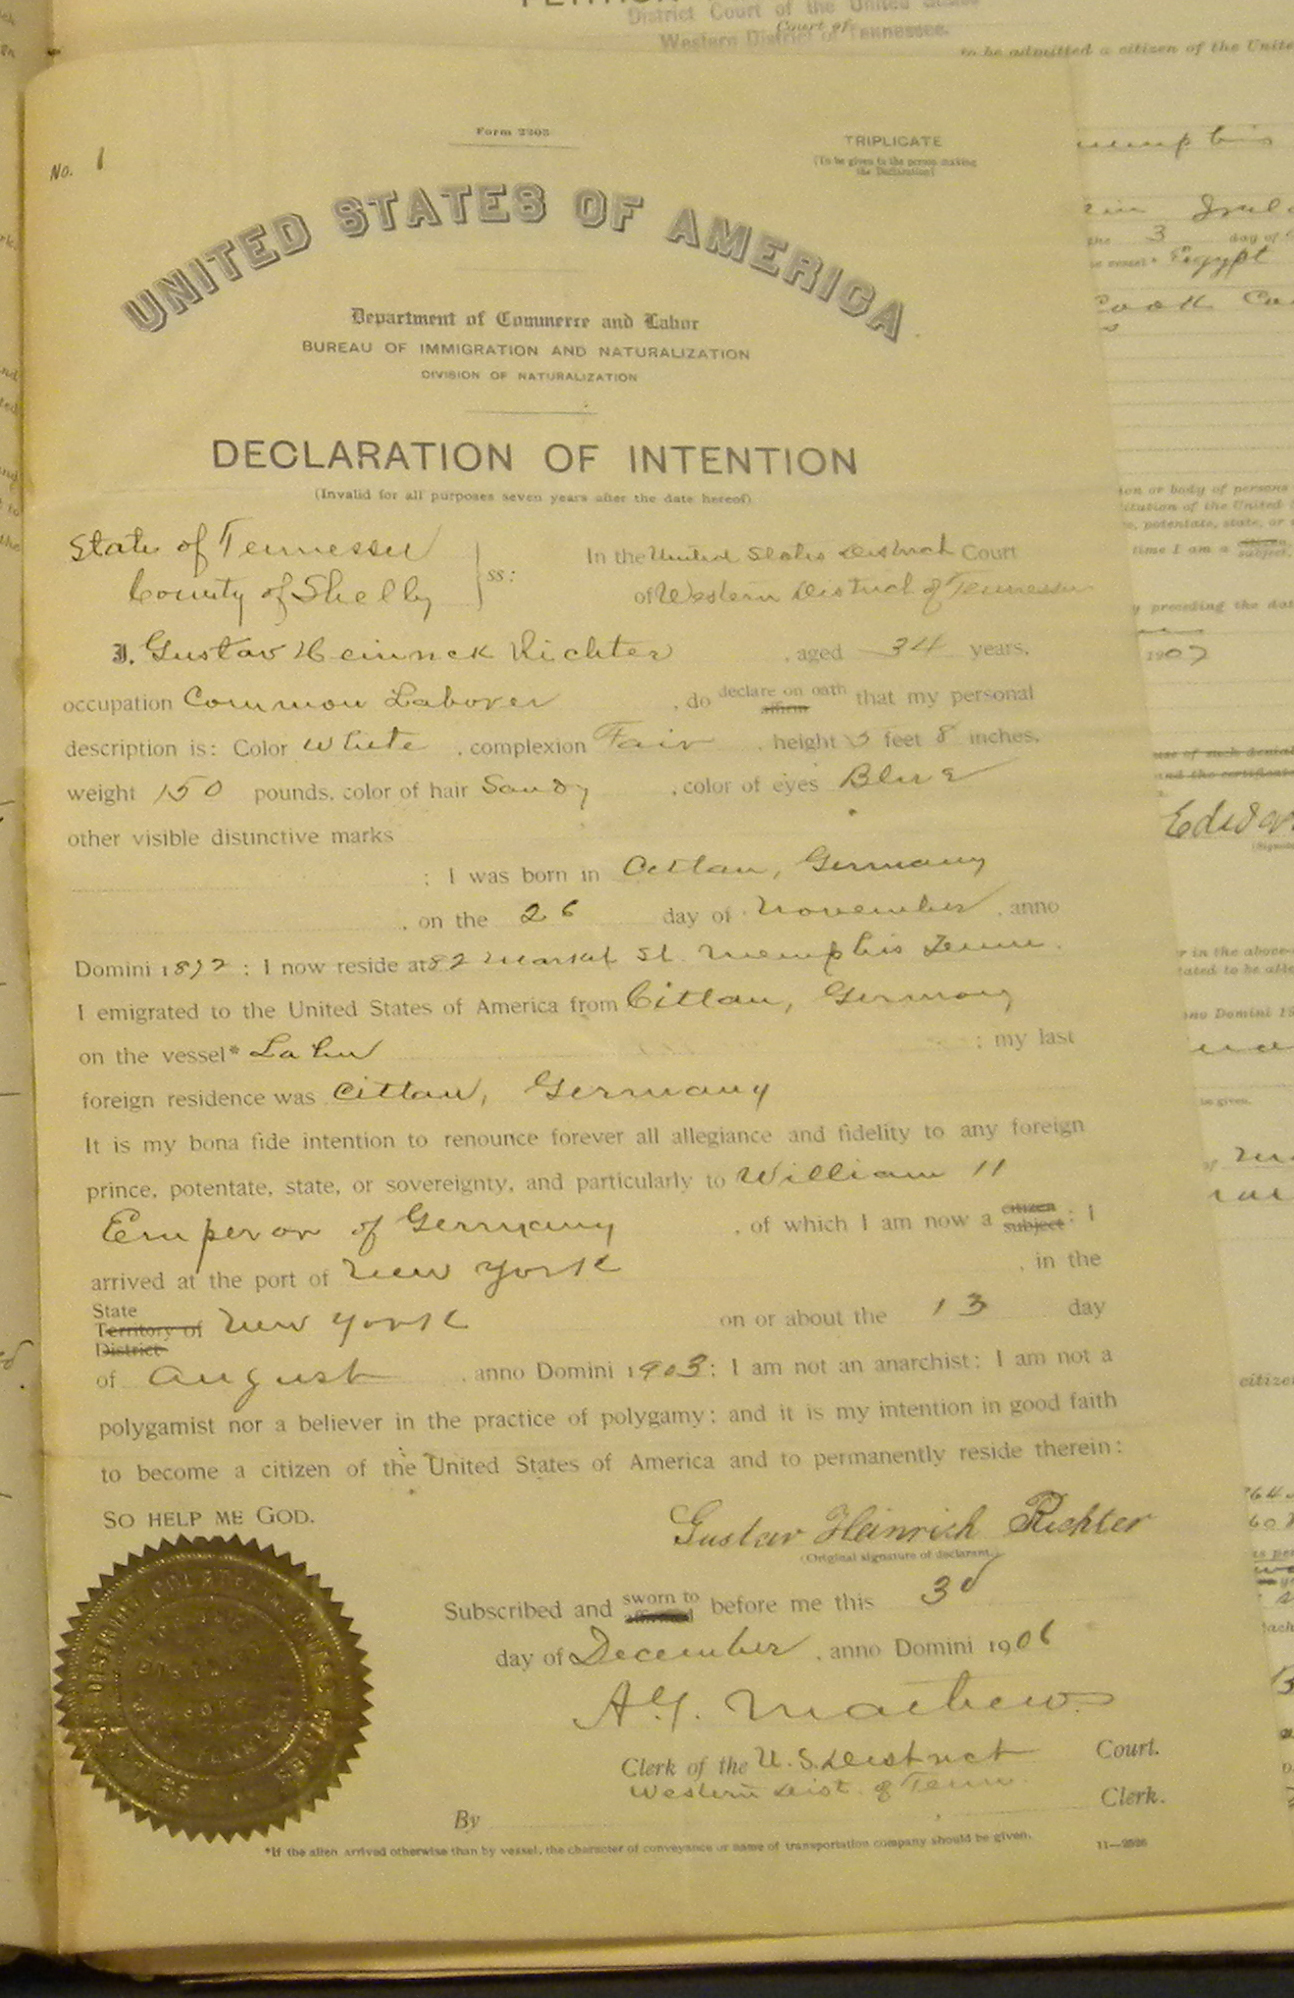 District Court of the United States
Court of
Western District of Tennessee.
to be admitted a citizen of the Unite
Form 2203
TRIPLICATE
(To be given to the person making
the Declaration)
No. 1
UNITED STATES OF AMERICA
Department of Commerce and Labor
BUREAU OF IMMIGRATION AND NATURALIZATION
DIVISION OF NATURALIZATION
DECLARATION OF INTENTION
(Invalid for all purposes seven years after the date hereof)
State of Tennessee
County of Shelby
ss:
In the United States District Court
of Western District of Tennessee
I, Gustav Heinrick Richter, aged 34 years,
occupation Common Laborer, do declare on oath affirm that my personal
description is: Color White, complexion Fair, height 5 feet 8 inches,
weight 150 pounds, color of hair Sandy, color of eyes Blue
other visible distinctive marks
: I was born in Cittau, Germany
, on the 26 day of November, anno
Domini 1872 : I now reside at 82 Market St. Memphis Tenn.
I emigrated to the United States of America from Cittau, Germany
on the vessel* Lahn : my last
foreign residence was Cittau, Germany
It is my bona fide intention to renounce forever all allegiance and fidelity to any foreign
prince, potentate, state, or sovereignty, and particularly to William II
Emperor of Germany, of which I am now a citizen subject : I
arrived at the port of New York, in the
State
Territory of New York on or about the 13 day
District
of August, anno Domini 1903: I am not an anarchist: I am not a
polygamist nor a believer in the practice of polygamy: and it is my intention in good faith
to become a citizen of the United States of America and to permanently reside therein:
SO HELP ME GOD.
Gustav Heinrich Richter
(Original signature of declarant.)
Subscribed and sworn to affirmed before me this 3d
day of December, anno Domini 1906
A.G. Mathews
Clerk of the U.S. District Court.
Western Dist. of Tenn.
By Clerk.
*If the alien arrived otherwise than by vessel, the character of conveyance or name of transportation company should be given.
the 3 day of
Egypt
ion or body of persons
, potentate, state, or
time I am a citizen, subject,
y preceding the dat
1907
Edw
r in the above-
be given.
citizen